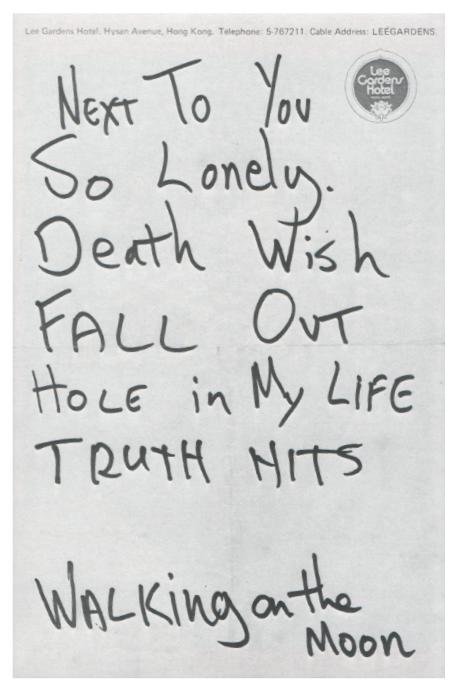 Lee Gardens Hotel, Hysan Avenue, Hong Kong. Telephone: 5-767211. Cable Address: LEEGARDENS.
Lee
Gardens
Hotel
NEXT To You
So Lonely.
Death Wish
FALL OUT
HOLE in My LIFE
TRUTH HITS
WALKing on the
Moon